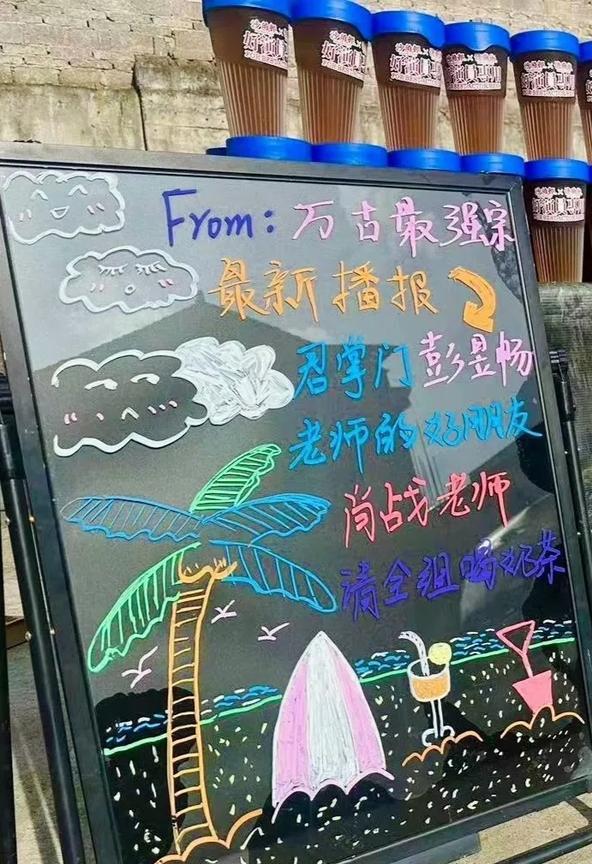 From: 万古最强宗
最新播报
君掌门彭昱畅
老师的好朋友
肖战老师
请全组喝奶茶